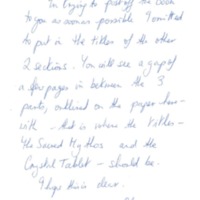 In trying to post off the book
to you as soon as possible I omitted
to put in the titles of the other
2 sections. You will see a gap of
a few pages in between the 3
parts, outlined on the paper here-
with – that is where the titles –
the Sacred Mythos and the
Crystal Tablet – should be.
I hope this is clear.